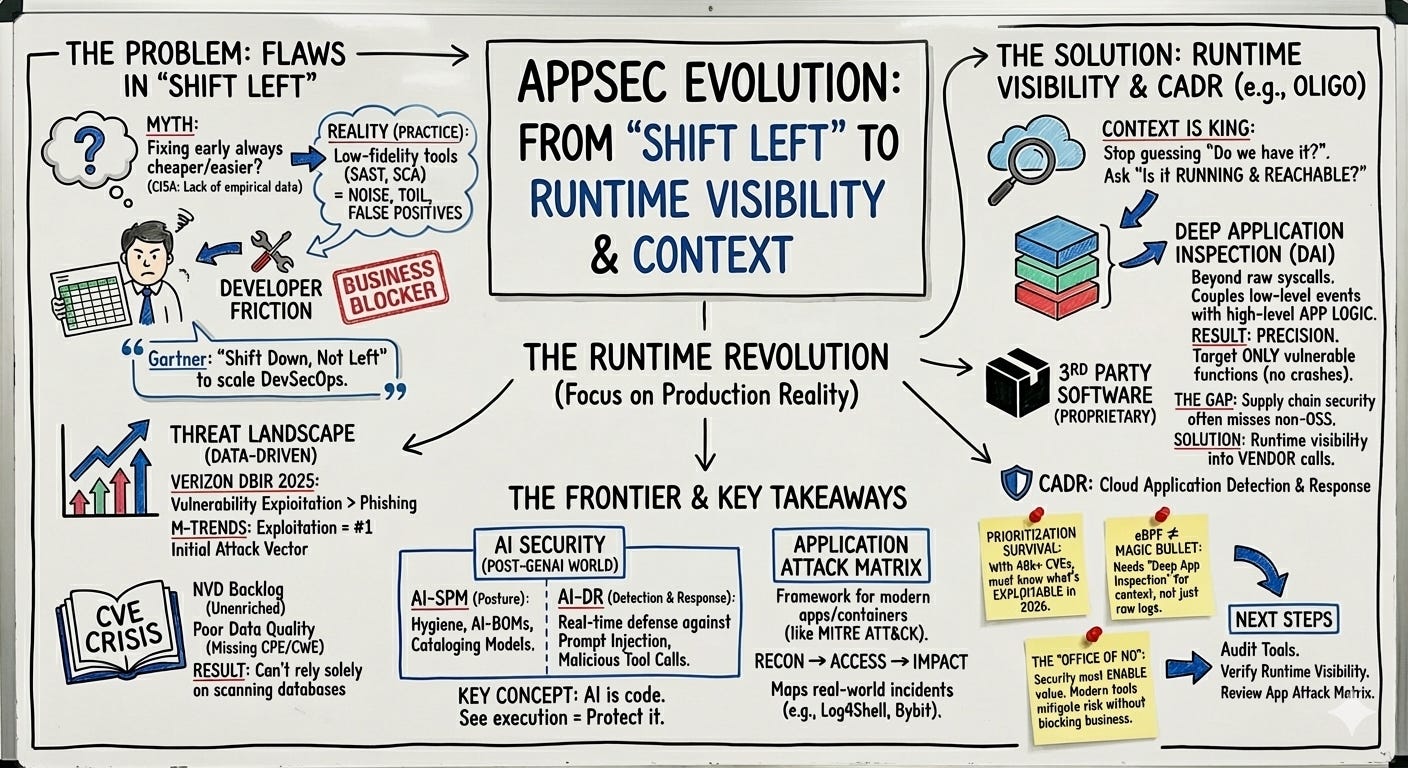 THE PROBLEM: FLAWS
IN “SHIFT LEFT”
MYTH:
Fixing early always
cheaper/easier?
(CISA: Lack of empirical data)
REALITY (PRACTICE):
Low-fidelity tools
(SAST, SCA)
= NOISE, TOIL,
FALSE POSITIVES
DEVELOPER
FRICTION
BUSINESS
BLOCKER
“Gartner: “Shift Down, Not Left”
to scale DevSecOps.”
THREAT LANDSCAPE
(DATA-DRIVEN)
VERIZON DBIR 2025:
Vulnerability Expioitation > Phishing
M-TRENDS: Exploitation = #1
Initial Attack Vector
CVE
CRISIS
NVD Backlog
(Unenriched)
Poor Data Quality
(Missing CPE/CWE)
RESULT: Can’t rely solely
on scanning databases
APPSEC EVOLUTION:
FROM “SHIFT LEFT” TO
RUNTIME VISIBILITY
& CONTEXT
THE RUNTIME REVOLUTION
(Focus on Production Reality)
THE FRONTIER & KEY TAKEAWAYS
AI SECURITY
(POST-GENAI WORLD)
AI-SPM (Posture):
Hygiene, AI-BOMs,
Cataloging Models.
AI-DR (Detection & Response):
Real-time defense against
Prompt Injection,
Malicious Tool Calls.
KEY CONCEPT: AI is code.
See execution = Protect it.
APPLICATION
ATTACK MATRIX
Framework for modern
apps/containers
(like MITRE ATT&CK).
RECON → ACCESS → IMPACT
Maps real-world incidents
(e.g., Log4Shell, Bybit).
THE SOLUTION: RUNTIME
VISIBILITY & CADR (e.g., OLIGO)
CONTEXT IS KING:
Stop guessing “Do we have it?”.
Ask “Is it RUNNING & REACHABLE?”
DEEP APPLICATION
INSPECTION (DAI)
Beyond raw syscalls.
Couples low-level events
with high-level APP LOGIC.
RESULT: PRECISION.
Target ONLY vulnerable
functions (no crashes).
3RD PARTY
SOFTWARE
(PROPRIETARY)
THE GAP: Supply chain security
often misses non-OSS.
SOLUTION: Runtime visibility
into VENDOR calls.
CADR: Cloud Application Detection & Response
PRIORITIZATION
SURVIVAL:
With 48k+ CVEs,
must know what’s
in
2026.
eBPF ≠
MAGIC BULLET:
Needs “Deep App
Inspection” for
context, not just
raw logs.
THE “OFFICE OF NO”:
Security most ENABLE
value. Modern tools
mitigole risk without
blocking business.
NEXT STEPS
Audit Tools.
Verify Runtime Visibility.
Review App Attack Matrix.